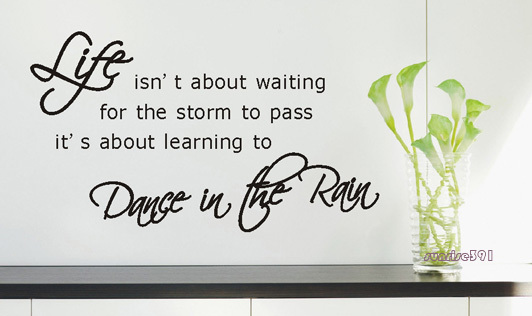 Life isn't about waiting
for the storm to pass
it's about learning to
Dance in the Rain
sunrise391